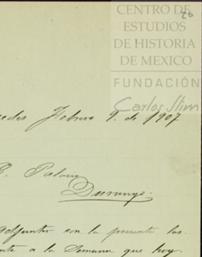 CENTRO DE
ESTUDIOS
DE HISTORIA
DE MEXICO
FUNDACIÓN
Carlos Slim
Febrero 9. de 1907
Durango.
con la presente las
a la Semana que hoy